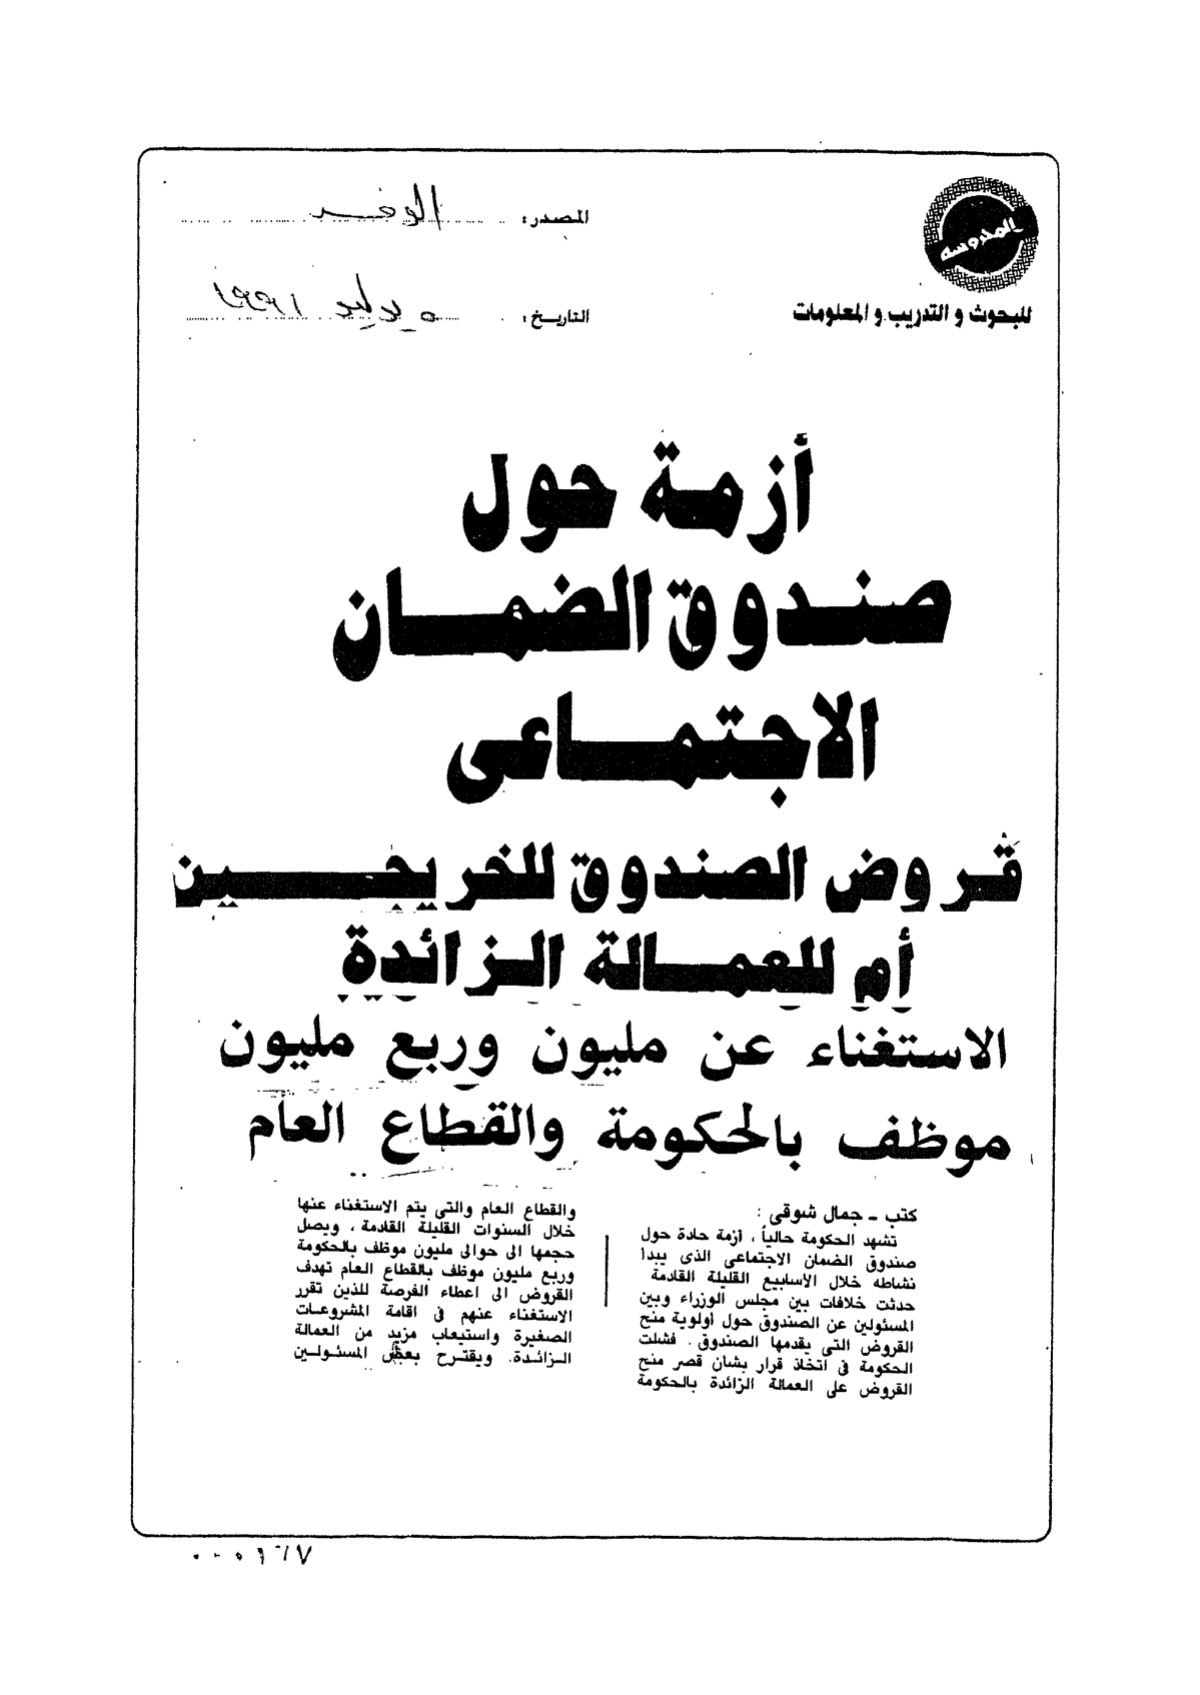 المدروسه
للبحوث و التدريب و المعلومات
المصدر: الوفد
التاريخ: ٥ يوليو ١٩٩١
أزمة حول
صندوق الضمان
الاجتماعى
قروض الصندوق للخريجين
أم للعمالة الزائدة
الاستغناء عن مليون وربع مليون
موظف بالحكومة والقطاع العام
كتب ـ جمال شوقى :
تشهد الحكومة حالياً ، أزمة حادة حول
صندوق الضمان الاجتماعى الذى يبدأ
نشاطه خلال الأسابيع القليلة القادمة
حدثت خلافات بين مجلس الوزراء وبين
المسئولين عن الصندوق حول أولوية منح
القروض التى يقدمها الصندوق . فشلت
الحكومة فى اتخاذ قرار بشأن قصر منح
القروض على العمالة الزائدة بالحكومة
والقطاع العام والتى يتم الاستغناء عنها
خلال السنوات القليلة القادمة ، ويصل
حجمها الى حوالى مليون موظف بالحكومة
وربع مليون موظف بالقطاع العام تهدف
القروض الى اعطاء الفرصة للذين تقرر
الاستغناء عنهم فى اقامة المشروعات
الصغيرة واستيعاب مزيد من العمالة
الزائدة. ويقترح بعض المسئولين